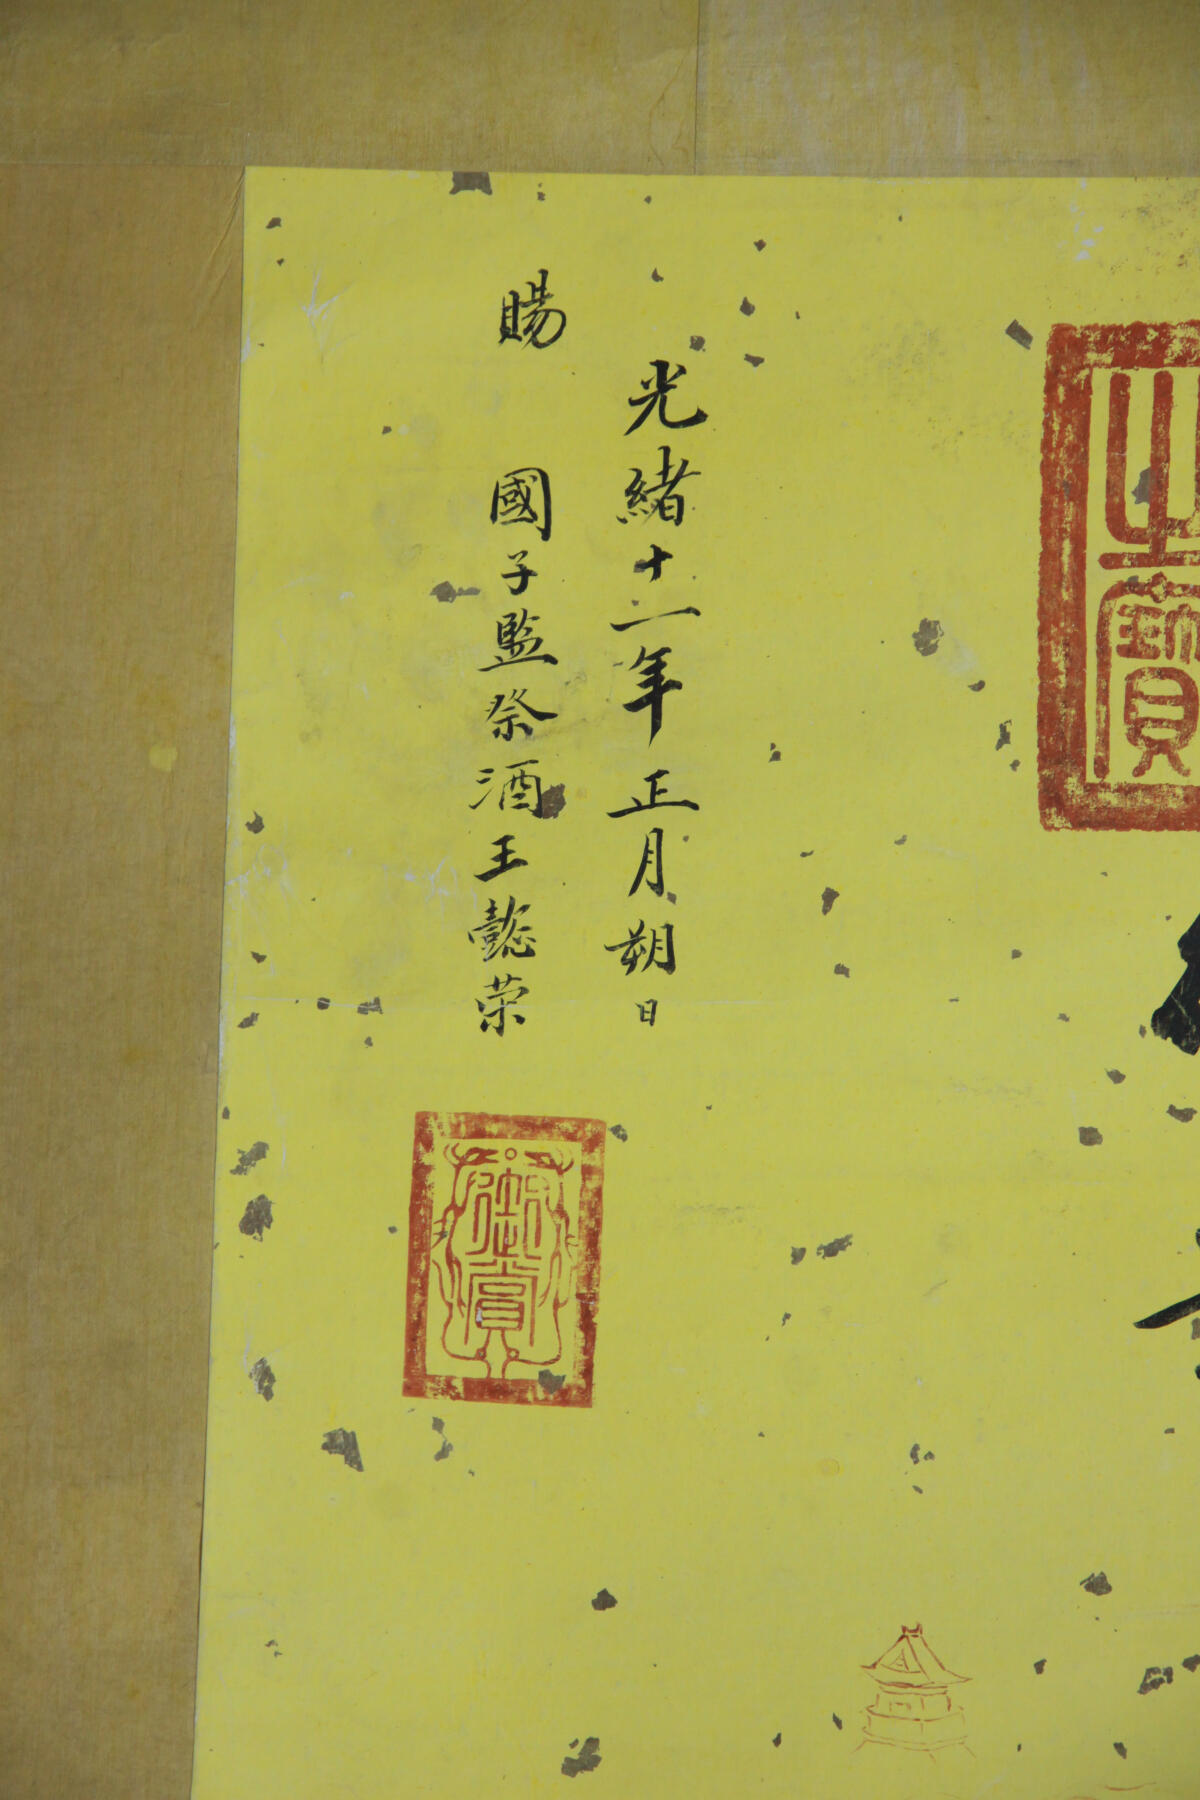 之寶
光緒十二年正月朔日
賜
國子監祭酒王懿荣
御賞